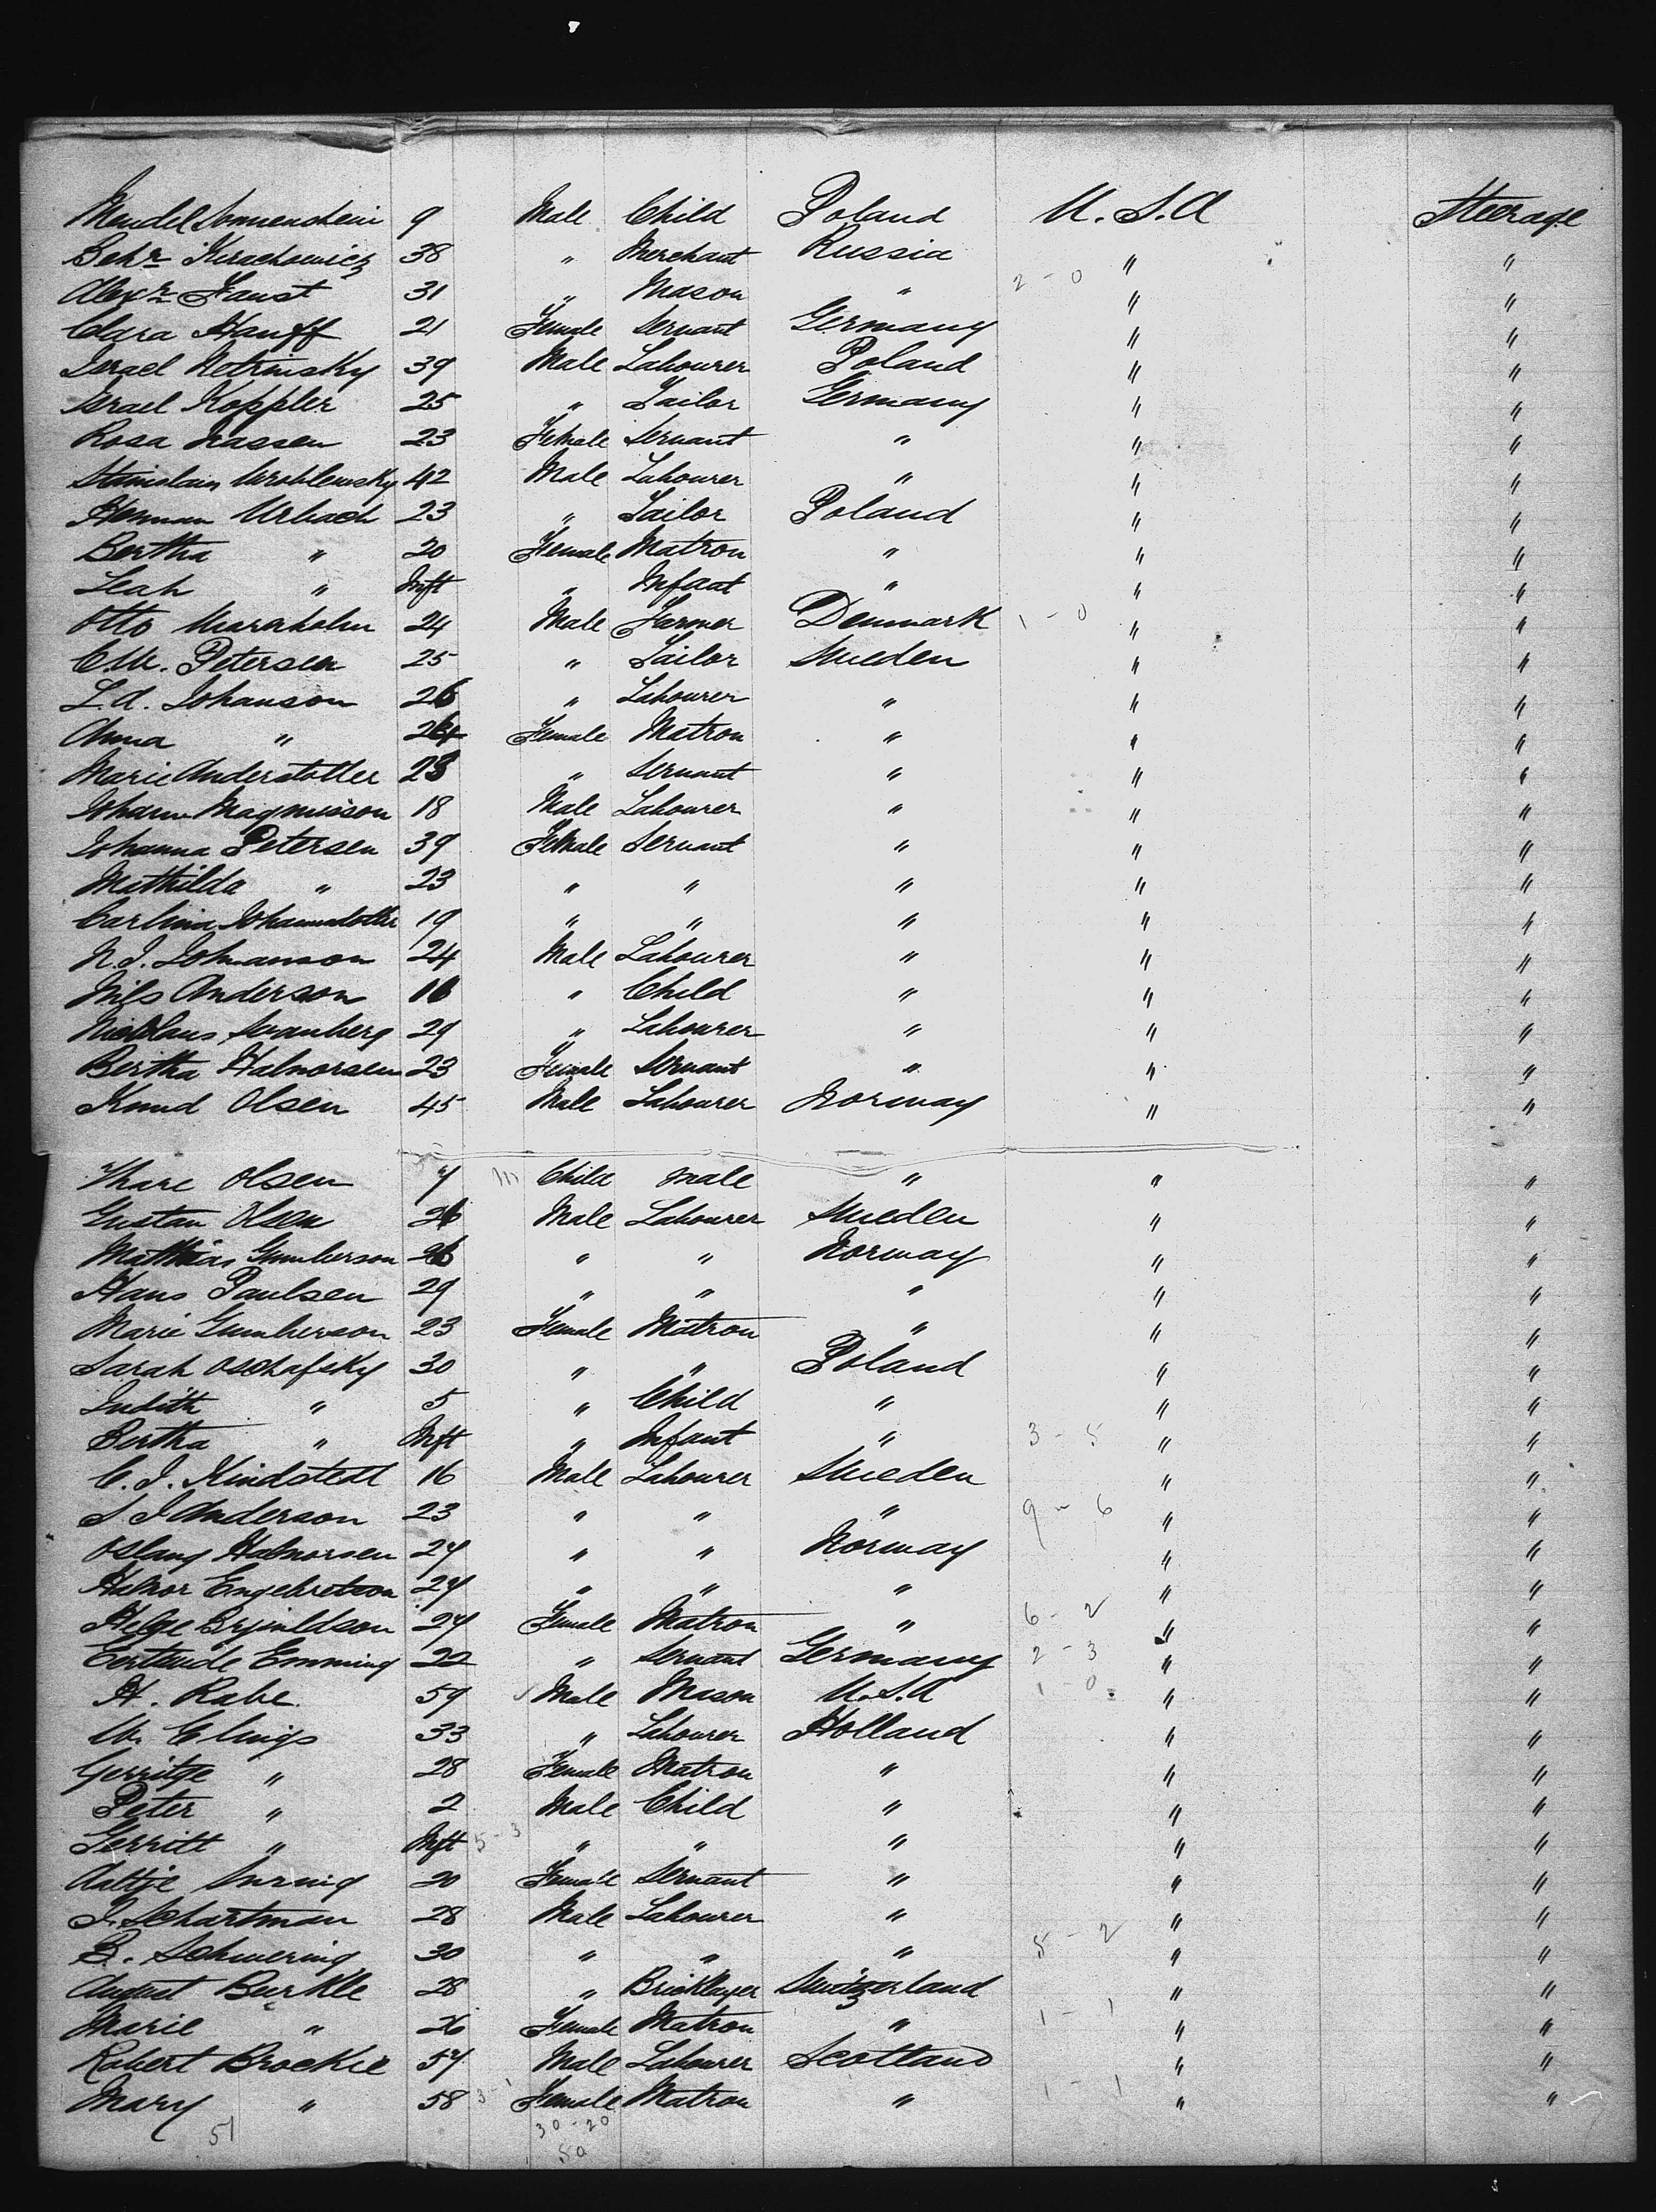 Mendel Sonnenschein 9 Male Child Poland U.S.A Steerage
Behr Kirachowicz 38 " Merchant Russia " "
Alexr Faust 31 " Mason " 2-0 " "
Clara Hauff 21 Female Servant Germany " "
Israel Netrinsky 39 Male Labourer Poland " "
Israel Koppler 25 " Tailor Germany " "
Rosa Nassen 23 Female Servant " " "
Stanislaus Wroblewsky 42 Male Labourer " " "
Herman Urbach 23 " Tailor Poland " "
Bertha " 20 Female Matron " " "
Leah " Inft " Infant " " "
Otto 24 Male Farmer Denmark 1-0 " "
C.W. Petersen 25 " Tailor Sweden " "
L.A. Johanson 26 " Labourer " " "
Anna " 24 Female Matron " " "
Marie Anderstotter 23 " Servant " " "
Johan Magnusson 18 Male Labourer " " "
Johanna Petersen 39 Female Servant " " "
Mathilda " 23 " " " " "
Carlina Johannsdotter 19 " " " " "
N.J. Johanson 24 Male Labourer " " "
Nils Anderson 16 " Child " " "
Nicklaus Svanberg 29 " Labourer " " "
Bertha Halvorsen 23 Female Servant " " "
Knud Olsen 45 Male Labourer Norway " "
Thare Olsen 7 m Child male " " "
Gustav Olsen 26 Male Labourer Sweden " "
Mathias Gunderson 26 " " Norway " "
Hans Paulsen 29 " " " " "
Marie Gunderson 23 Female Matron " " "
Sarah Oschafsky 30 " " Poland " "
Judith " 5 " Child " " "
Bertha " Inft " Infant " 3-5 " "
C.J. Kindstedt 16 Male Labourer Sweden " "
S J Anderson 23 " " " 9-6 " "
Oslang Halvorsen 24 " " Norway " "
Halvor Engebretson 24 " " " " "
Helge Brjnildson 24 Female Matron " 6-2 " "
Gertrude Emming 22 " Servant Germany 2-3 " "
H. Rabe 59 Male Mason U.S.A 1-0 " "
W. Elings 33 " Labourer Holland " "
Gerritje " 28 Female Matron " " "
Peter " 2 Male Child " " "
Gerritt " Inft 5-3 " " " " "
Aaltje 20 Female Servant " " "
J. Schartman 28 Male Labourer " " "
B. Schwering 30 " " " 5-2 " "
August Burkle 28 " Bricklayer Switzerland " "
Marie " 26 Female Matron " 1-1 " "
Robert Brockie 57 Male Labourer Scotland " "
Mary " 58 3-1 Female Matron " 1-1 " "
51 30-20
50